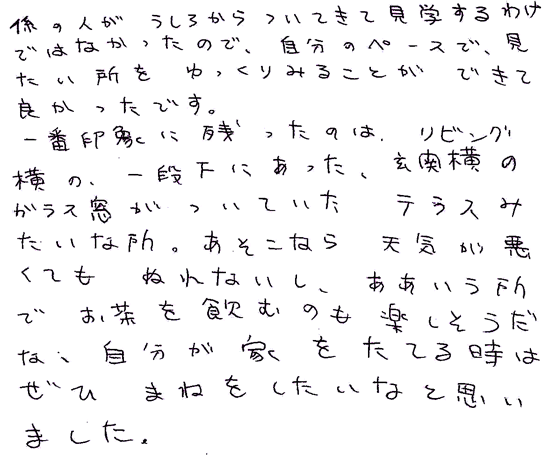 係の人が うしろから ついてきて見学するわけ
ではなかったので、自分のペースで、見
たい所を ゆっくりみることが できて
良かったです。
一番印象に残ったのは、リビング
横の、一段下にあった、玄関横の
ガラス窓がついていた テラスみ
たいな所。あそこなら 天気が悪
くても ぬれないし、ああいう所
で お茶を飲むのも楽しそうだ
な、自分が家をたてる時は
ぜひ まねをしたいなと思い
ました。